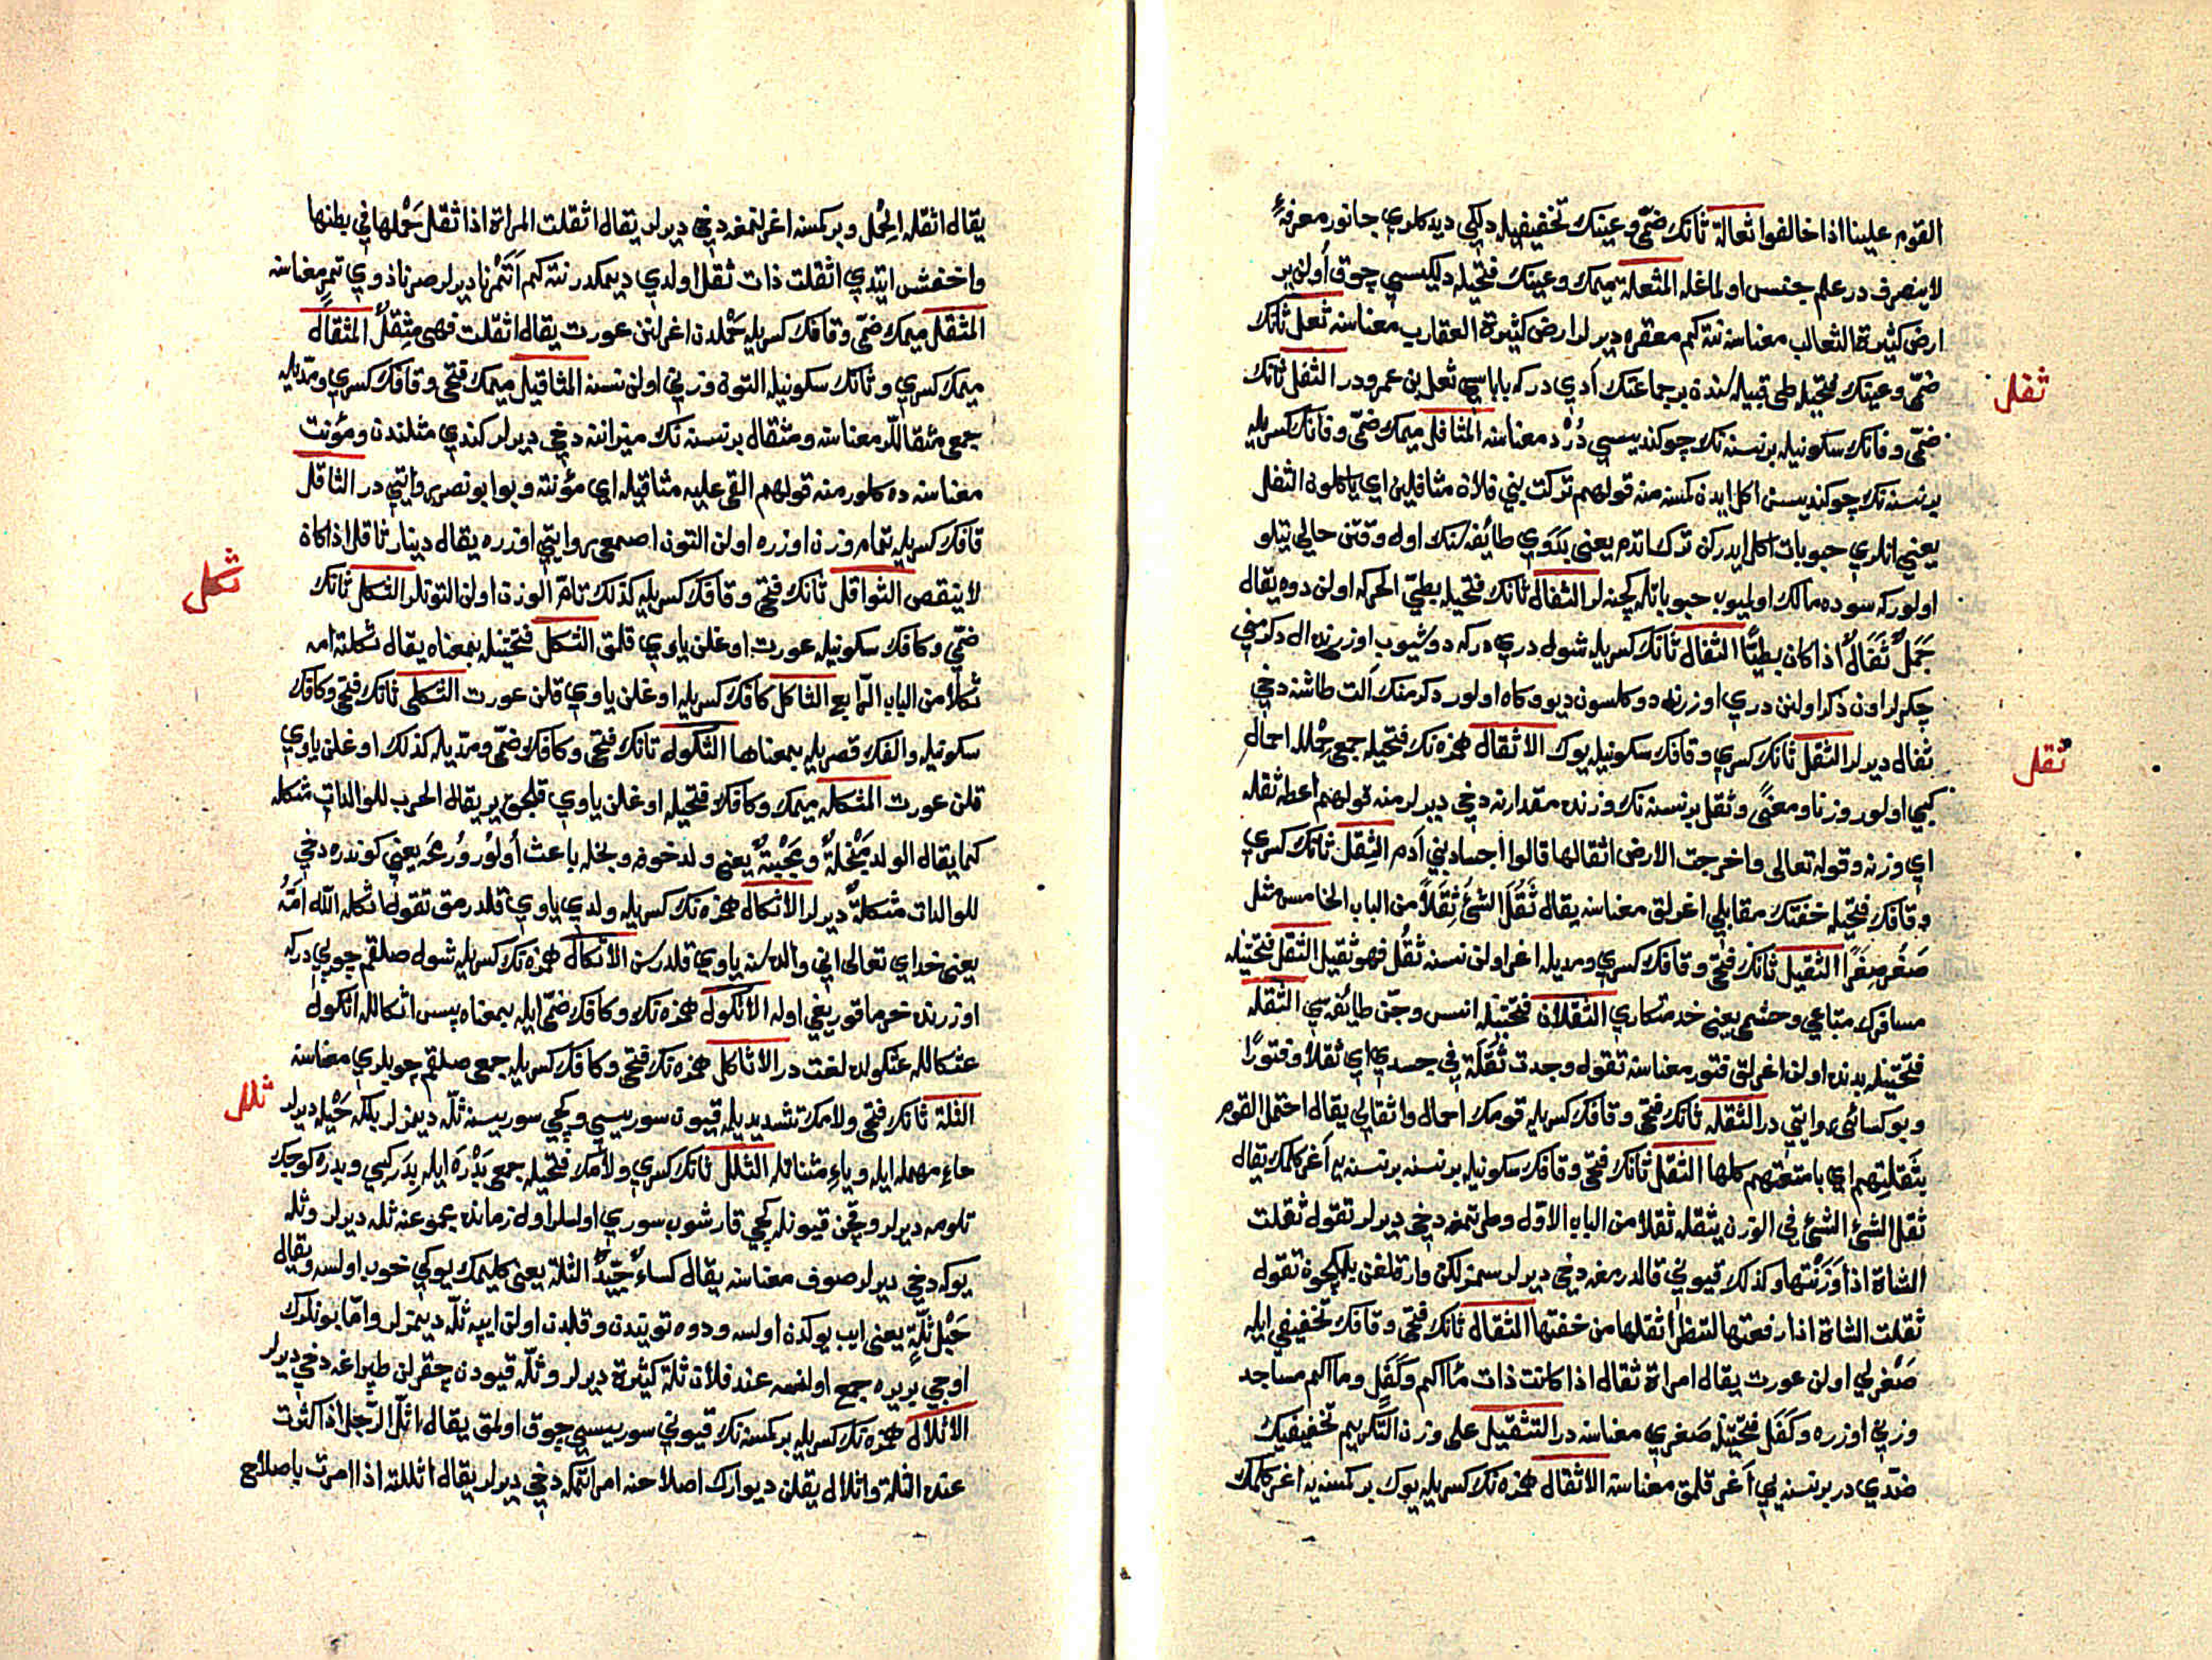 القوم علينا اذا خالفوا ثعالة ثانك ضمّي وعينك تخفيفيله دلكي ديدكلري جانور معرفهٔ
لا ينصرف در علم جنس اولماغله المثعلة ميمك وعينك فتحيله دلكيسي چوق اولن ير
ارض كثيرة الثعالب معناسنه نته كم معقره ديرلر ارض كثيرة العقارب معناسنه ثعل ثانك
ثفل
ضمّي وعينك فتحيله طى قبيله سنده بر جماعتك آدي در كه باباسي ثعل بن عمرودر الثفل ثانك
ضمّي وفانك سكونيله بر نسنه نك چوكنديسي دُرْد معناسنه المثافل ميمك ضمّي وفانك كسريله
بر نسنه نك چوكنديسن اكل ايدن كمسنه منه قولهم تركت بني فلان مثافلين اي ياكلون الثفل
يعني انلري حبوبات اكل ايدركن ترك اتدم يعني بَدَوي طائفه سنك اول وقتن حالي يتلو
اولور كه سوده مالك اولميوب حبوباتله كچنه لر الثفال ثانك فتحيله بطئ الحركه اولن دوه يقال
جَمَلٌ ثَفَالٌ اذا كان بطيئًا الثفال ثانك كسريله شول دري در كه دوشيوب اوزرنده ال دكرمني
چكرلر اون دكر اولنن دري اوزرنه دوكلسون ديو وكاه اولور دكرمنك آلت طاشنه دخي
ثقل
ثفال ديرلر الثقل ثانك كسري وقافك سكونيله يوك الاثقال همزه نك فتحيله جمعي حمْل احمال
كبي اولور وزنا ومعنًى وثقل بر نسنه نك وزنده مقدارنه دخي ديرلر منه قولهم اعطه ثقله
اي وزنه وقوله تعالى واخرجت الارض اثقالها قالوا اجساد بني آدم الثِقل ثانك كسري
وقافك فتحيله خفتك مقابلي اغرلق معناسنه يقال ثَقُلَ الشئُ ثِقَلاً من الباب الخامس مثل
صَغُر صِغَرًا الثقيل ثانك فتحي وقافك كسري ومديله اغر اولن نسنه ثقُل فهو ثقيل الثقل فتحتينله
مسافرك متاعي وحشمي يعني خدمتكاري الثقلان فتحتينله انس وجن طائفه سي الثقله
فتحتينله بدنده اولن اغرلق فتور معناسنه تقول وجدت ثَقَلَة في جسدي اي ثقلا وفتورًا
وبو كسائى روايتي در الثقله ثانك فتحي وقافك كسريله قومك احمال واثقالي يقال احتمل القوم
بثَقِلتِهم اي بامتعتهم كلها الثقل ثانك فتحي وقافك سكونيله بر نسنه بر نسنه يه آغر كلمك يقال
ثقل الشئ الشئ في الوزن يثقله ثقلا من الباب الاول وطى تمغه دخي ديرلر تقول ثقلت
الشاة اذا وَزَنْتَها وكذلك قيوني قالدرمغه دخي ديرلر سمزلكن وارقلغن بلمكچون تقول
ثقلت الشاة اذا رفعتها لتنظر اثقلها من خفتها الثقال ثانك فتحي وقافك تخفيفي ايله
صَغْرلي اولن عورت يقال امراة ثقال اذا كانت ذات مآكم وكَفَل ومآكم مساجد
وزني اوزره وكَفَل فتحتينله صَغري معناسنه در التثقيل على وزن التكريم تخفيفك
ضدّي در بر نسنه يي آغر قلمق معناسنه الاثقال همزه نك كسريله يوك بر كمسنه يه اغر كلمك
يقال اثقله الحِمْل وبر كمسنه اغرلنمغه دخي ديرلر يقال اثقلت المراة اذا ثقل حَمْلها في بطنها
واخفش ايتدي اثقلت ذات ثقل اولدي ديمكدر نته كم اَتْمَرْنا ديرلر صرنا ذوي تمرٍ معناسنه
المثقل ميمك ضمّي وقافك كسريله حَمْلدن اغرلنن عورت يقال اثقلت فهى مثِقلٌ المثقال
ميمك كسري وثانك سكونيله التون وزني اولن نسنه المثاقيل ميمك فتحي وقافك كسري ومدّيله
جمعي مثقاللر معناسنه ومثقال بر نسنه نك ميزاننه دخي ديرلر كندي مثلندن ومؤنت
معناسنه ده كلور منه قولهم القى عليه مثاقيله اي مؤنته وبو ابو نصر روايتي در الثاقل
قافك كسريله تمام وزن اوزره اولن التون اصمعي روايتي اوزره يقال دينار ثاقل اذا كان
ثكل
لا ينقص الثواقل ثانك فتحي وقافك كسريله كذلك تامّ الوزن اولن التونلر الثكل ثانك
ضمّي وكافك سكونيله عورت اوغلن ياوي قلمق الثكل فتحتينله بمعناه يقال ثكلته امه
ثكلاً من الباب الرابع الثاكل كافك كسريله اوغلن ياوي قلن عورت الثكلى ثانك فتحي وكافك
سكونيله والفك قصريله بمعناها الثكول ثانك فتحي وكافك ضمّي ومدّيله كذلك اوغلن ياوي
قلن عورت المثكله ميمك وكافك فتحيله اوغلن ياوي قلجق ير يقال الحرب للوالدات مثكلة
كما يقال الولد مَبْخلةٌ ومَجْبَنةٌ يعني ولد خوفه وبخله باعث اُولُور وُرمحَه يعني كوندره دخي
للوالدات مثكلةٌ ديرلر الاثكال همزه نك كسريله ولدي ياوي قلدرمق تقول اثكله الله اُمَّهُ
يعني خداي تعالى اني والده سنه ياوي قلدرسن الاثكال همزه نك كسريله شول صلقم چوپي در كه
اوزرنده خرما قوريغي اوله الاثكول همزه نك وكافك ضمّي ايله بمعناه پس اثكال لله اثكول
عثكال لله عثكولده لغت در الاثاكل همزه نك فتحي وكافك كسريله جمعي صلقم چوپلري معناسنه
ثلل
الثلة ثانك فتحي ولامك تشديديله قيون سوريسي وكچي سوريسنه ثلّه ديمزلر بلكه حَيْله ديرلر
حاءِ مهمله ايله وياءِ مثناتله الثلل ثانك كسري ولامك فتحيله جمعي بَدْرَه ايله بِدَر كبي وبدره كوچك
تلومه ديرلر وقچن قيونله كچي قارشوب سوري اولسلر اول زمانده مجموعنه ثله ديرلر وثله
يوكه دخي ديرلر صوف معناسنه يقال كساءٌ جيّدُ الثلة يعني كليمك يوكي خوب اولسه ويقال
حَبْل ثَلّةٍ يعني ايپ يوكدن اولسه ودوه تويندن وقلدن اولن ايپه ثلّه ديمزلر واما بونلرك
اوچي بر يره جمع اولنسه عند فلان ثلة كثيرة ديرلر وثلّه قيودن چقرلن طپراغه دخي ديرلر
الاثلال همزه نك كسريله بر كمسنه نك قيوني سوريسي چوق اولمق يقال اثلّ الرجل اذا كثرت
عنده الثلة واثلال يقلن ديوارك اصلاحنه امر اتمكه دخي ديرلر يقال اثللته اذا امرت باصلاح